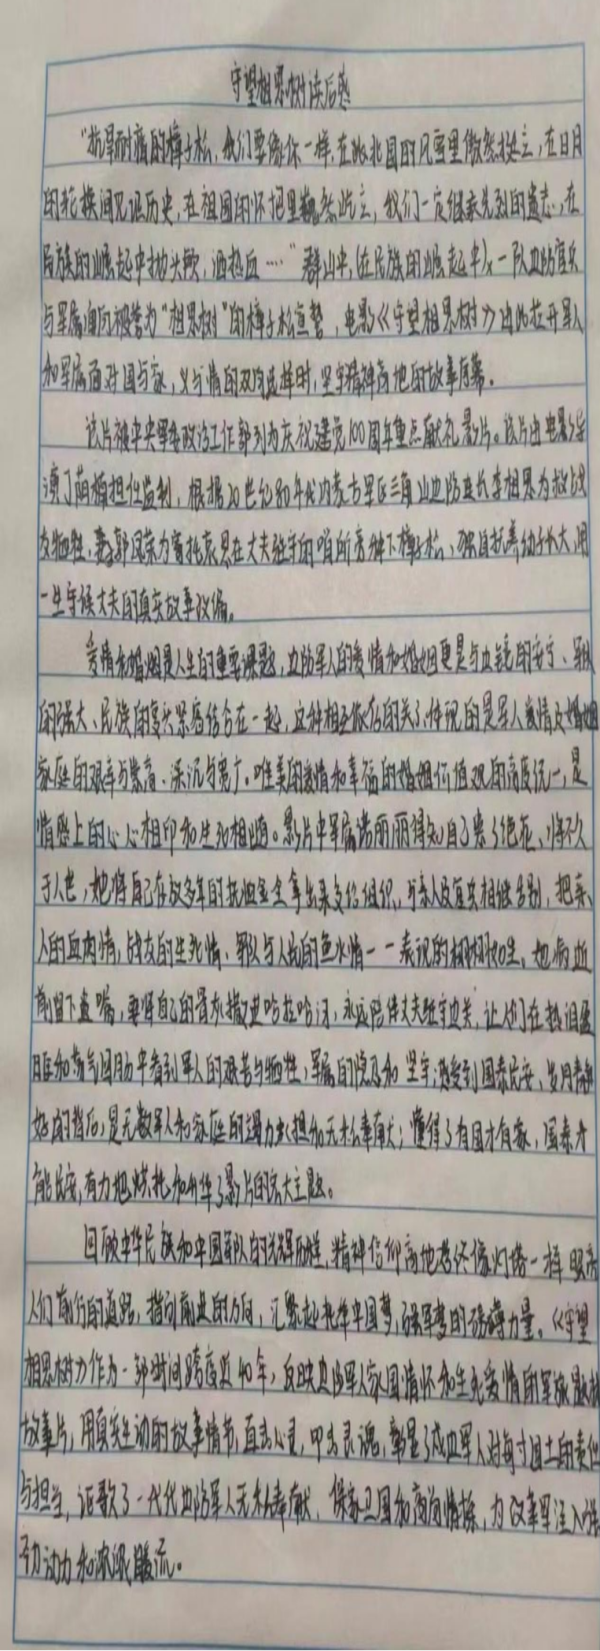 守望相思树读后感
"抗旱耐瘠的樟子松,我们要像你一样,在北国的风雪里傲然挺立,在日月
的轮换间见证历史,在祖国的怀抱里巍然屹立,我们一定继承先烈的遗志,在
民族的崛起中抛头颅,洒热血……"群山中,(在民族的崛起中)一队边防官兵
与军属面向被誉为"相思树"的樟子松宣誓,电影《守望相思树》由此拉开军人
和军属面对国与家,义与情的双向选择时,坚守精神高地的故事序幕。
该片被中央军委政治工作部列为庆祝建党100周年重点献礼影片。该片由电影导
演丁荫楠担任监制,根据20世纪80年代内蒙古军区三角山边防连长李相恩为救战
友牺牲,妻子郭凤荣为寄托哀思在丈夫驻守的哨所旁种下樟子松、独自抚养幼子长大,用
一生守候丈夫的真实故事改编。
爱情和婚姻是人生的重要课题,边防军人的爱情和婚姻更是与边疆的安宁、军队
的强大、民族的复兴紧密结合在一起,这种相互依存的关系,体现的是军人爱情及婚姻
家庭的艰辛与崇高、深沉与宽广。唯美的爱情和幸福的婚姻价值观的高度统一,是
情感上的心心相印和生死相随。影片中军属诺丽丽得知自己患了绝症、将不久
于人世,她将自己存放多年的抚恤金全拿出来交给组织,与亲人及复员相继告别,把亲
人的血肉情,战友的生死情、军队与人民的鱼水情一一表现的栩栩如生。她病逝
前留下遗嘱,要将自己的骨灰撒进哈拉哈河,永远陪伴丈夫驻守边关,让人们在热泪盈
眶和荡气回肠中看到军人的艰苦与牺牲,军属的悦忍和坚守;感受到国泰民安、岁月静
好的背后,是无数军人和家庭的竭力承担和无私奉献;懂得了有国才有家,国泰才
能民安,有力地烘托和升华了影片的强大主题。
回顾中华民族和中国军队的光辉历程,精神信仰高地总还像灯塔一样照亮
人们前行的道路,指引前进的方向,汇聚起托举中国梦,强军梦的磅礴力量。《守望
相思树》作为一部时间跨度近40年,反映边防军人家国情怀和生死爱情的军旅题材
故事片,用真实生动的故事情节,直击心灵,叩击灵魂,彰显了戍边军人对每寸国土的责任
与担当,讴歌了一代代边防军人无私奉献、保家卫国和高尚情操,为改革军注入强
劲动力和浓浓暖流。